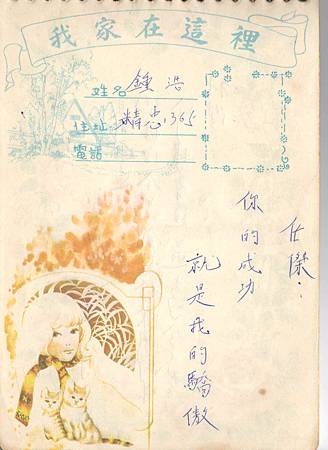 我家在這裡
姓名 鍾浩
住址 精忠1365
電話
任傑：
你的成功
就是我的驕傲